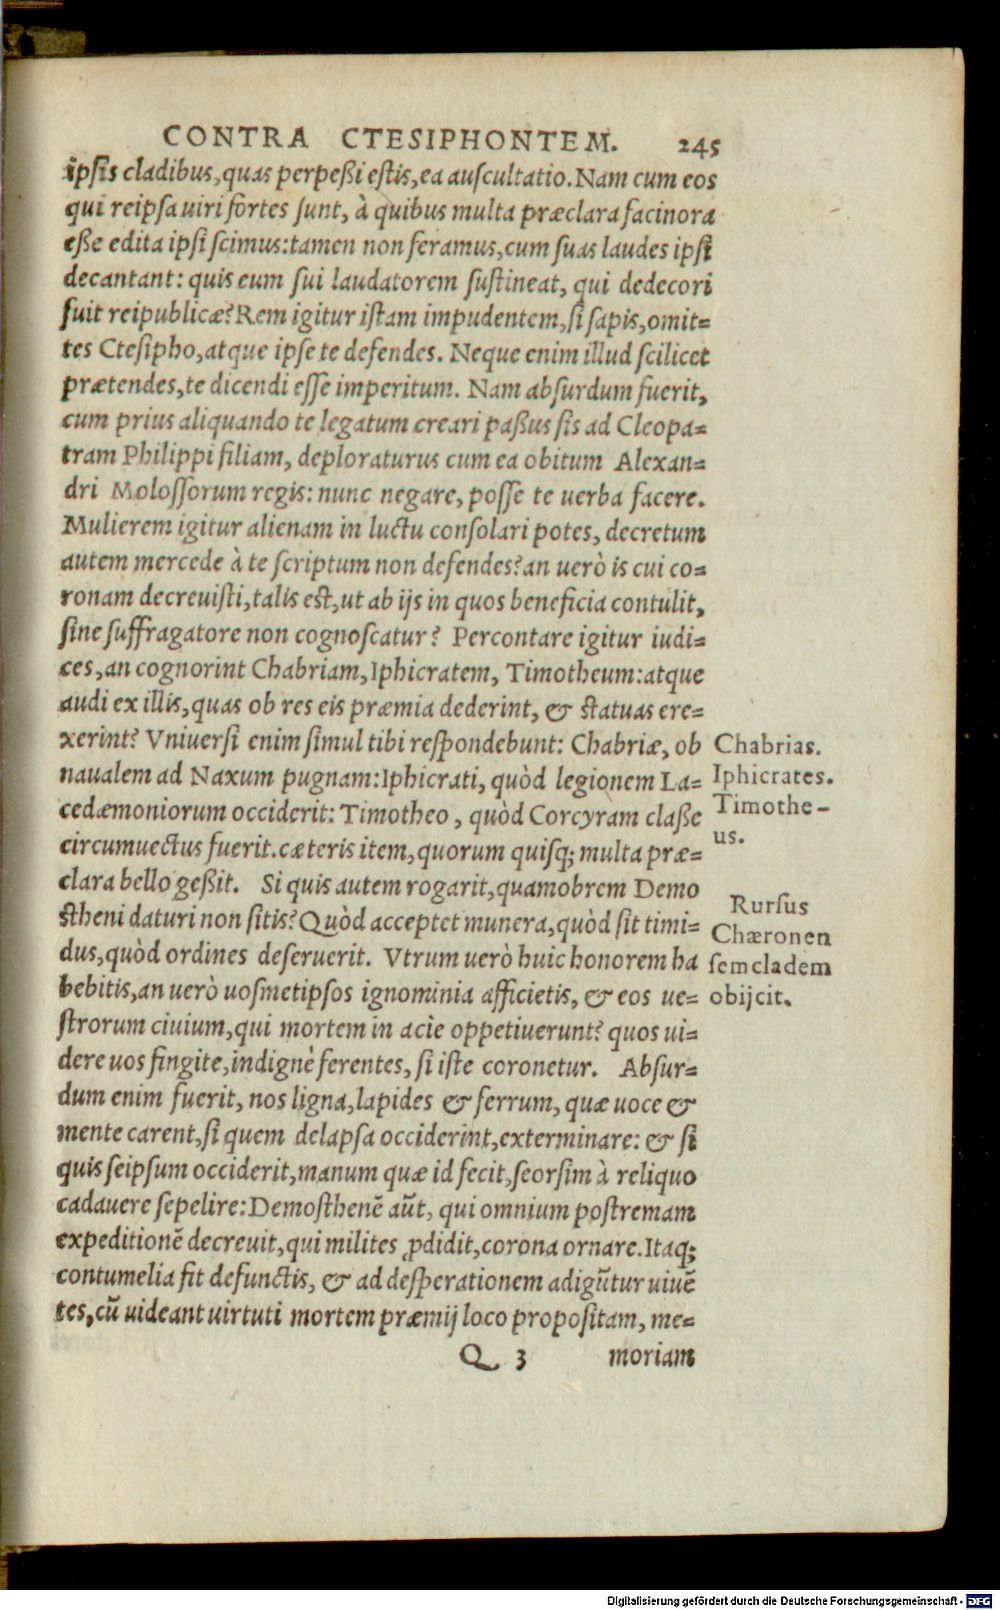 CONTRA CTESIPHONTEM. 245
ipsis cladibus, quas perpeßi estis, ea auscultatio. Nam cum eos
qui reipsa uiri fortes sunt, à quibus multa præclara facinora
eße edita ipsi scimus: tamen non feramus, cum suas laudes ipsi
decantant: quis eum sui laudatorem sustineat, qui dedecori
fuit reipublicæ? Rem igitur istam impudentem, si sapis, omit=
tes Ctesipho, atque ipse te defendes. Neque enim illud scilicet
prætendes, te dicendi esse imperitum. Nam absurdum fuerit,
cum prius aliquando te legatum creari paßus sis ad Cleopa=
tram Philippi filiam, deploraturus cum ea obitum Alexan=
dri Molossorum regis: nunc negare, posse te uerba facere.
Mulierem igitur alienam in luctu consolari potes, decretum
autem mercede à te scriptum non defendes? an uerò is cui co=
ronam decreuisti, talis est, ut ab ijs in quos beneficia contulit,
sine suffragatore non cognoscatur? Percontare igitur iudi=
ces, an cognorint Chabriam, Iphicratem, Timotheum: atque
audi ex illis, quas ob res eis præmia dederint, & statuas ere=
xerint? Vniuersi enim simul tibi respondebunt: Chabriæ, ob
naualem ad Naxum pugnam: Iphicrati, quòd legionem La=
cedæmoniorum occiderit: Timotheo, quòd Corcyram claße
circumuectus fuerit. cæteris item, quorum quisq; multa præ=
clara bello geßit. Si quis autem rogarit, quamobrem Demo
stheni daturi non sitis? Quòd acceptet munera, quòd sit timi=
dus, quòd ordines deseruerit. Vtrum uerò huic honorem ha
bebitis, an uerò uosmetipsos ignominia afficietis, & eos ue=
strorum ciuium, qui mortem in acie oppetiuerunt? quos ui=
dere uos fingite, indignè ferentes, si iste coronetur. Absur=
dum enim fuerit, nos ligna, lapides & ferrum, quæ uoce &
mente carent, si quem delapsa occiderint, exterminare: & si
quis seipsum occiderit, manum quæ id fecit, seorsim à reliquo
cadauere sepelire: Demosthenē aūt, qui omnium postremam
expeditionē decreuit, qui milites ꝓdidit, corona ornare. Itaq;
contumelia fit defunctis, & ad desperationem adigūtur uiuē
tes, cū uideant uirtuti mortem præmij loco propositam, me=
Q 3 moriam
Chabrias.
Iphicrates.
Timothe-
us.
Rursus
Chæronen
sem cladem
obijcit.
Digitalisierung gefördert durch die Deutsche Forschungsgemeinschaft - DFG